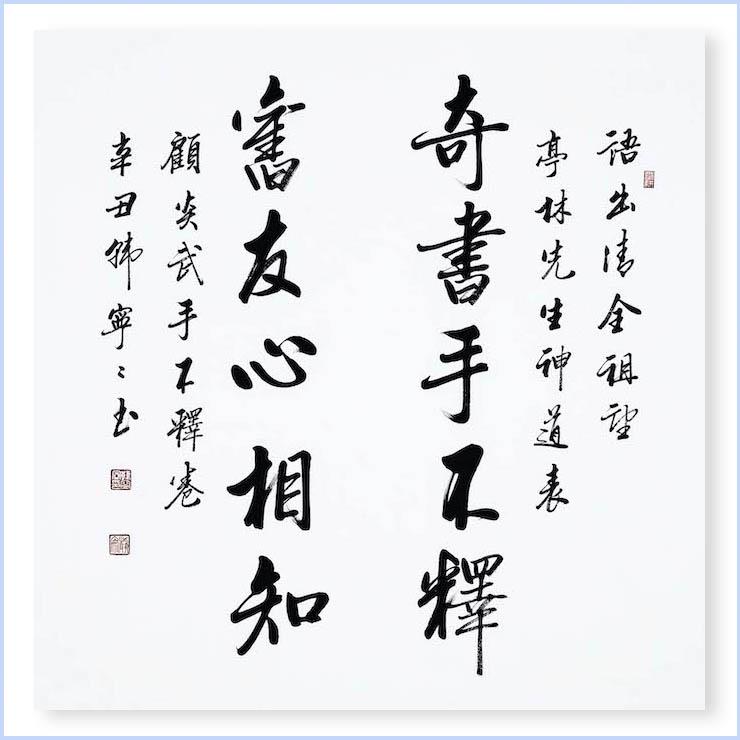 語出清全祖望
亭林先生神道表
奇書手不釋
舊友心相知
顧炎武手不釋卷
辛丑韓寧〻书